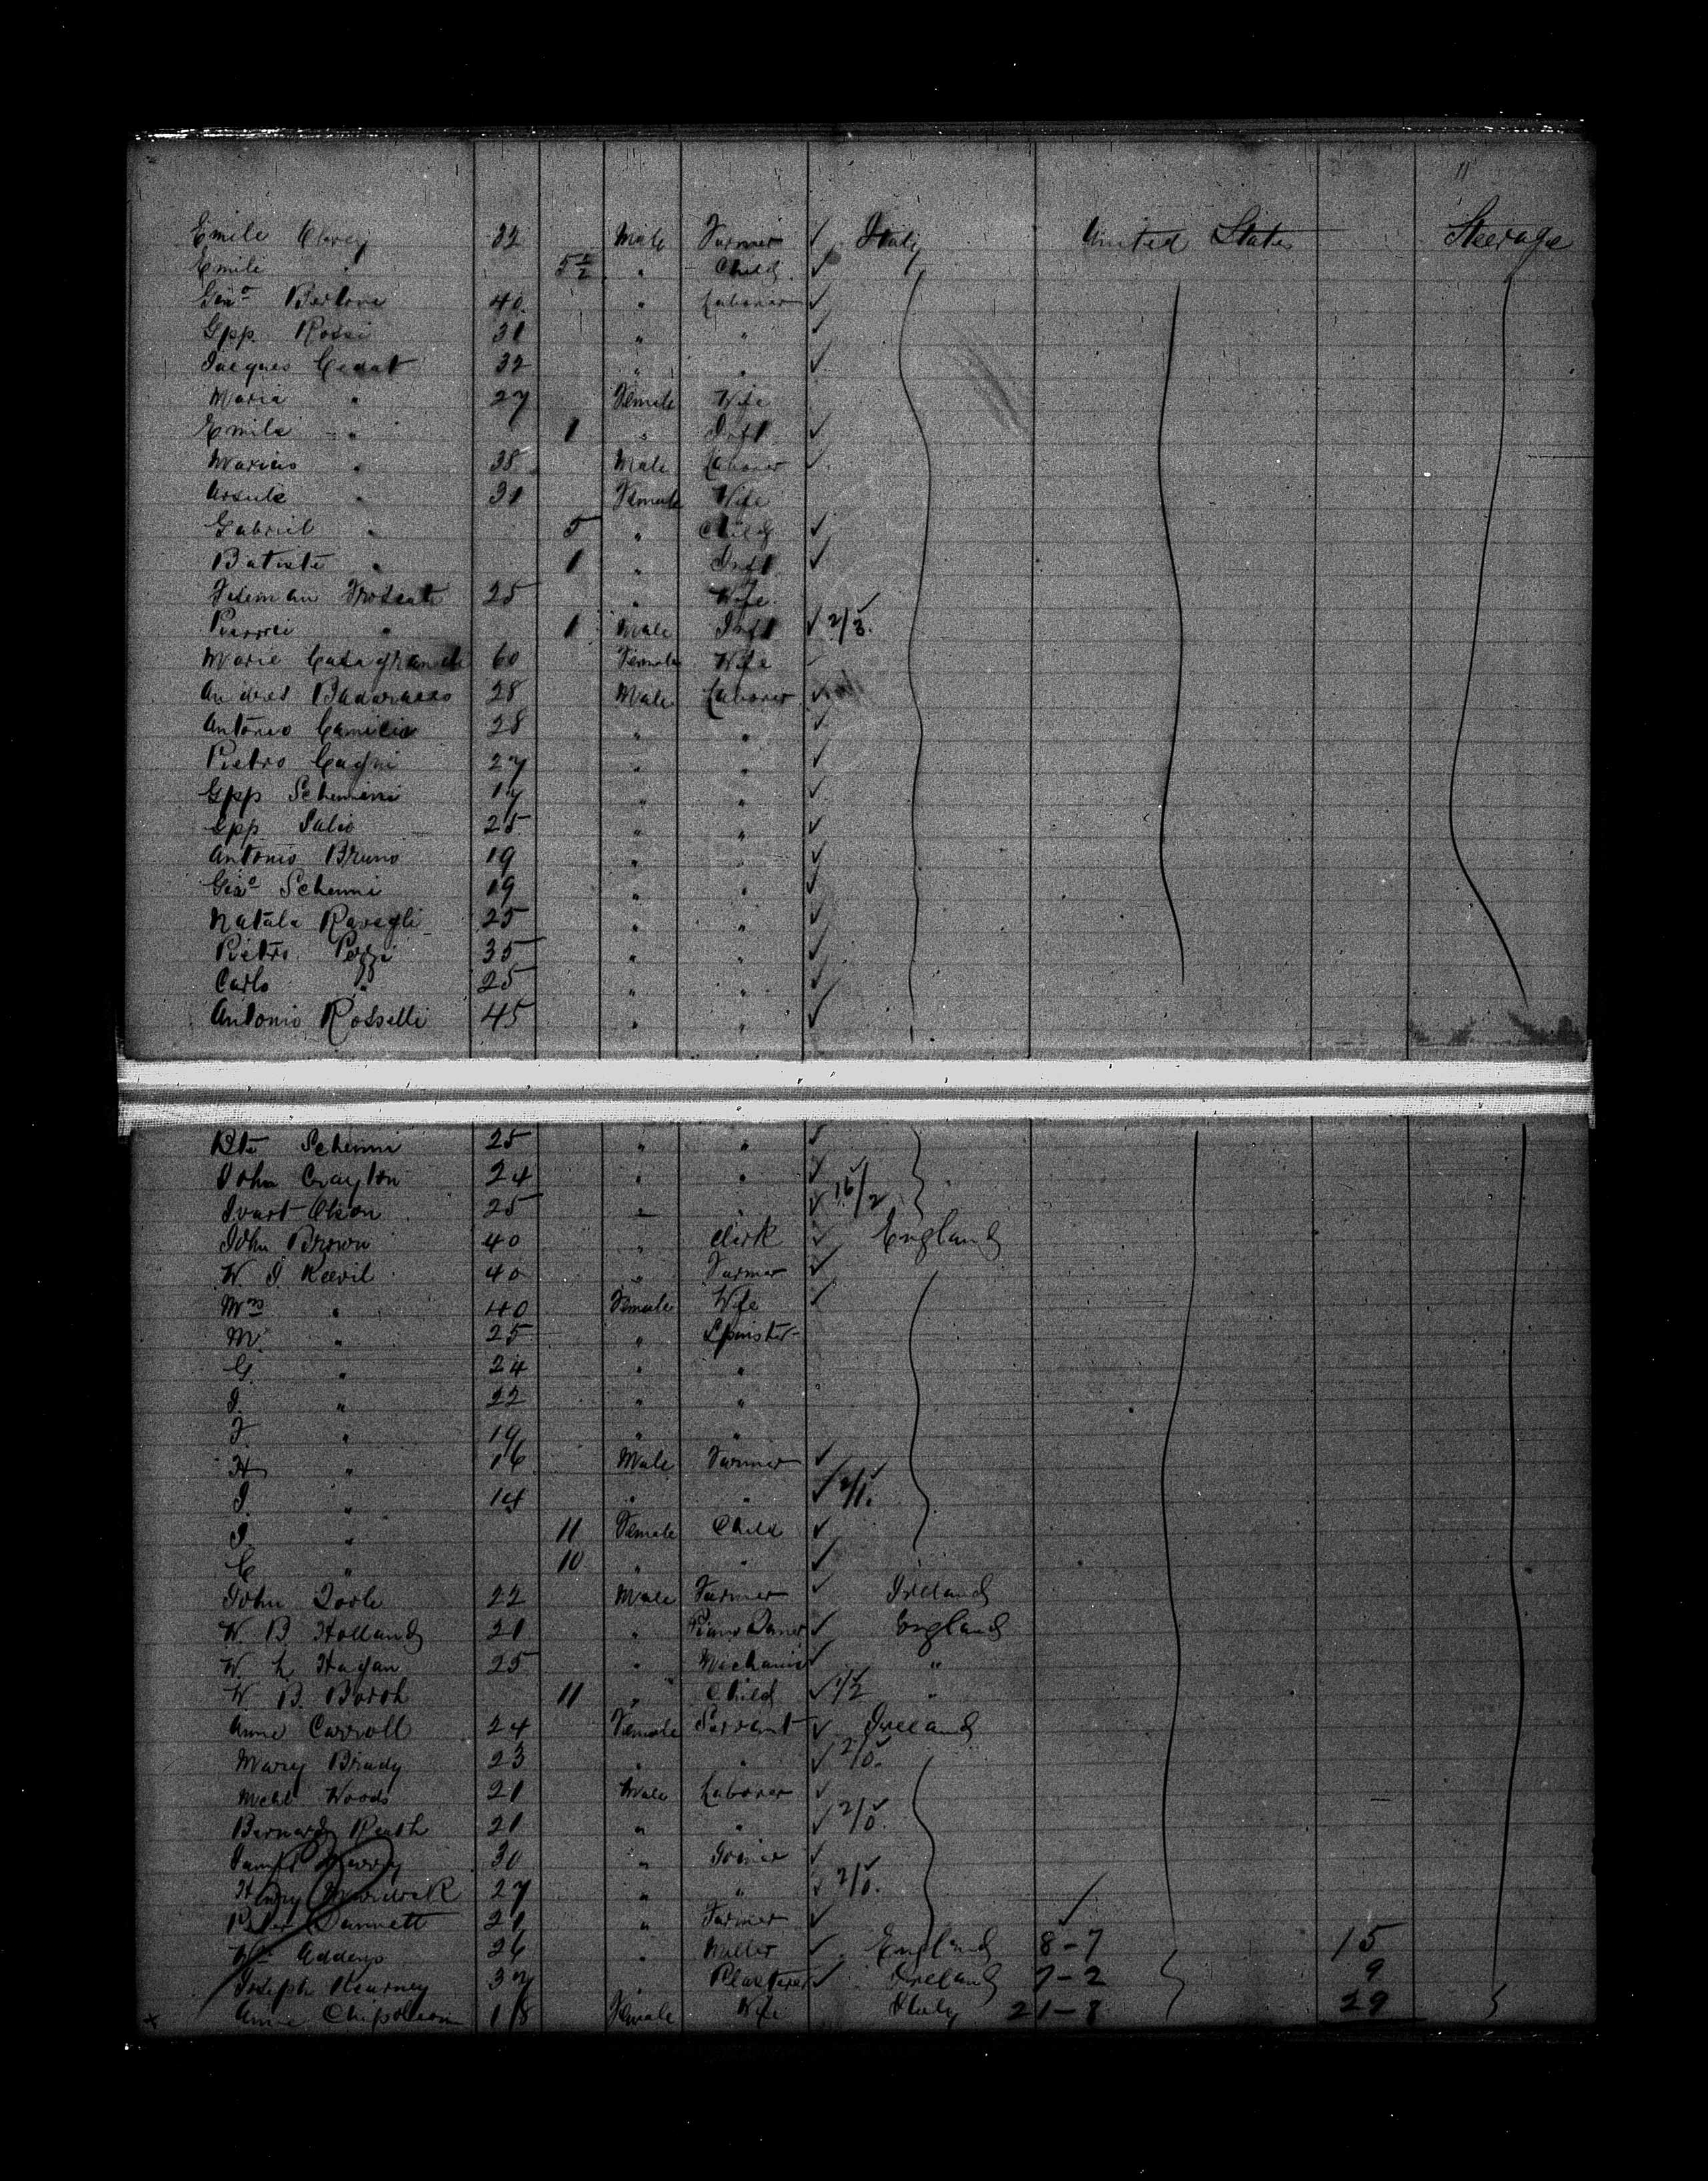 11
Emile 32 Male Farmer ✓ Italy United States Steerage
Emili " 5 " Child ✓
Gio Bertoni 40 " Laborer ✓
Gpp. Rossi 31 " " ✓
Jacques Cedat 32 " " ✓
Maria " 27 Female Wife
Emile " 1 " Inft ✓
Marius " 38 Male Laborer ✓
" 31 Female Wife
Gabriel " 5 " Child ✓
Batiste " 1 " Inft ✓
25 " Wife
" 1 Male Inft ✓ 2/3.
Marie 60 Female Wife
Andres Badaracco 28 Male Laborer ✓
Antonio Camicia 28 " " ✓
Pietro Cagni 27 " " ✓
Gpp Schemini 17 " " ✓
Gpp Salio 25 " " ✓
Antonio Bruno 19 " " ✓
Gio Schemi 19 " " ✓
Natala Ravegli 25 " " ✓
Pietro Pozzi 35 " " ✓
Carlo " 25 " " ✓
Antonio Rosselli 45 " " ✓
Schemi 25 " " ✓
John Crayton 24 " " ✓
Ivart Olson 25 " " ✓ 16/2
John Brown 40 " Clerk ✓ England
W. J Keevil 40 " Farmer ✓
Mrs " 40 Female Wife ✓
M. " 25 " Spinster
G. " 24 " "
J. " 22 " "
F. " 19 " "
H " 16 Male Farmer ✓
J. " 14 " " ✓ 2/1.
J. " 11 Female Child ✓
C " 10 " " ✓
John Toole 22 Male Farmer ✓ Ireland
W. B. Holland 21 " ✓ England
W. L Hagan 25 " Mechanic ✓ "
W. B. Booth 11 " Child ✓ 1/2 "
Anne Carroll 24 Female Servant ✓ Ireland
Mary Brady 23 " " ✓ 2/0.
Michl Woods 21 Male Laborer ✓
Bernard Reath 21 " " ✓ 2/0.
James 30 " Joiner ✓
Henry 27 " " ✓ 2/0.
Peter Dannett 21 " Farmer ✓
Wm Addeys 26 " Miller ✓ England 8-7 15
Joseph Kearney 37 " Plasterer ✓ Ireland 7-2 9
x Anne 18 Female Wife Italy 21-8 29